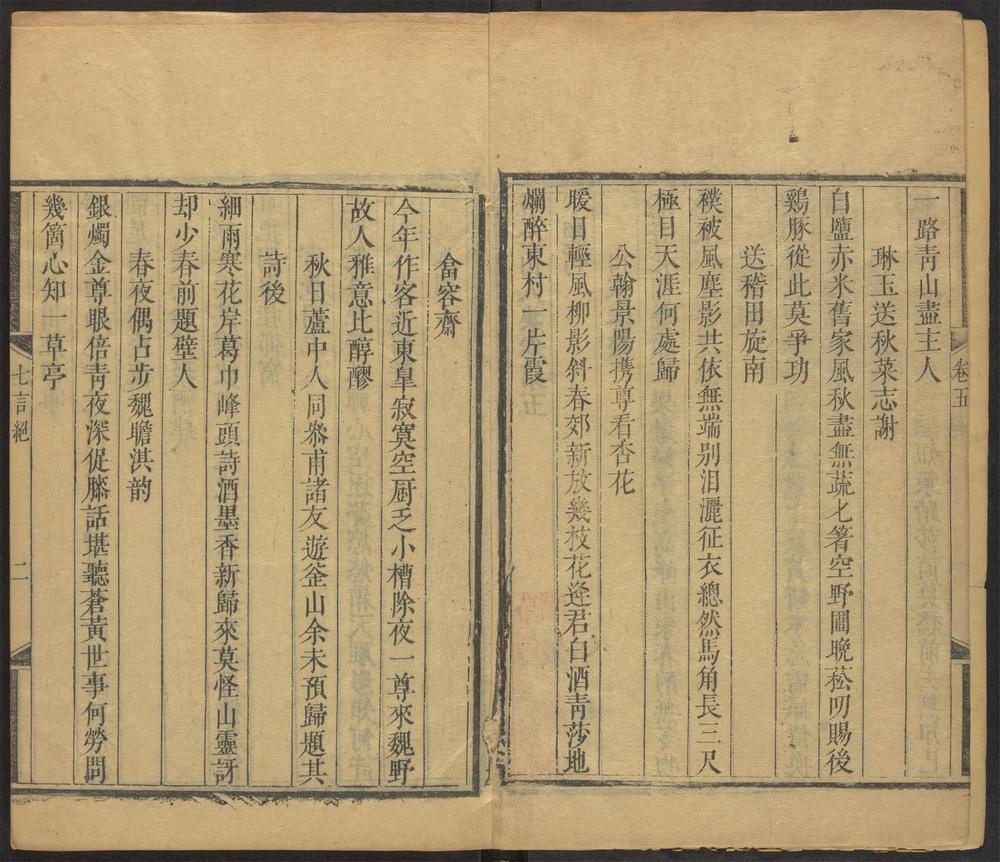 卷五
一路青山盡主人
琳玉送秋菜志謝
白鹽亦米舊家風秋盡無蔬匕箸空野圃晩菘叨賜後
鷄豚從此莫爭功
送稽田旋南
襆被風塵影共依無端别泪灑征衣總然馬角長三尺
極目天涯何處歸
公翰景陽携尊看杏花
暖日輕風柳影斜春郊新放幾枝花逢君白酒靑莎地
爛醉東村一片霞
畣容齋
今年作客近東臯寂寞空厨乏小槽除夜一尊來魏野
故人雅意比醇醪
秋日蘆中人同㕘甫諸友遊釜山余未預歸題其
詩後
細雨寒花岸葛巾峰頭詩酒墨香新歸來莫怪山靈訝
却少春前題壁人
春夜偶占步魏瞻淇韵
銀燭金尊眼倍靑夜深促膝話堪聽蒼黃世事何勞問
幾箇心知一草亭
七言絕
二